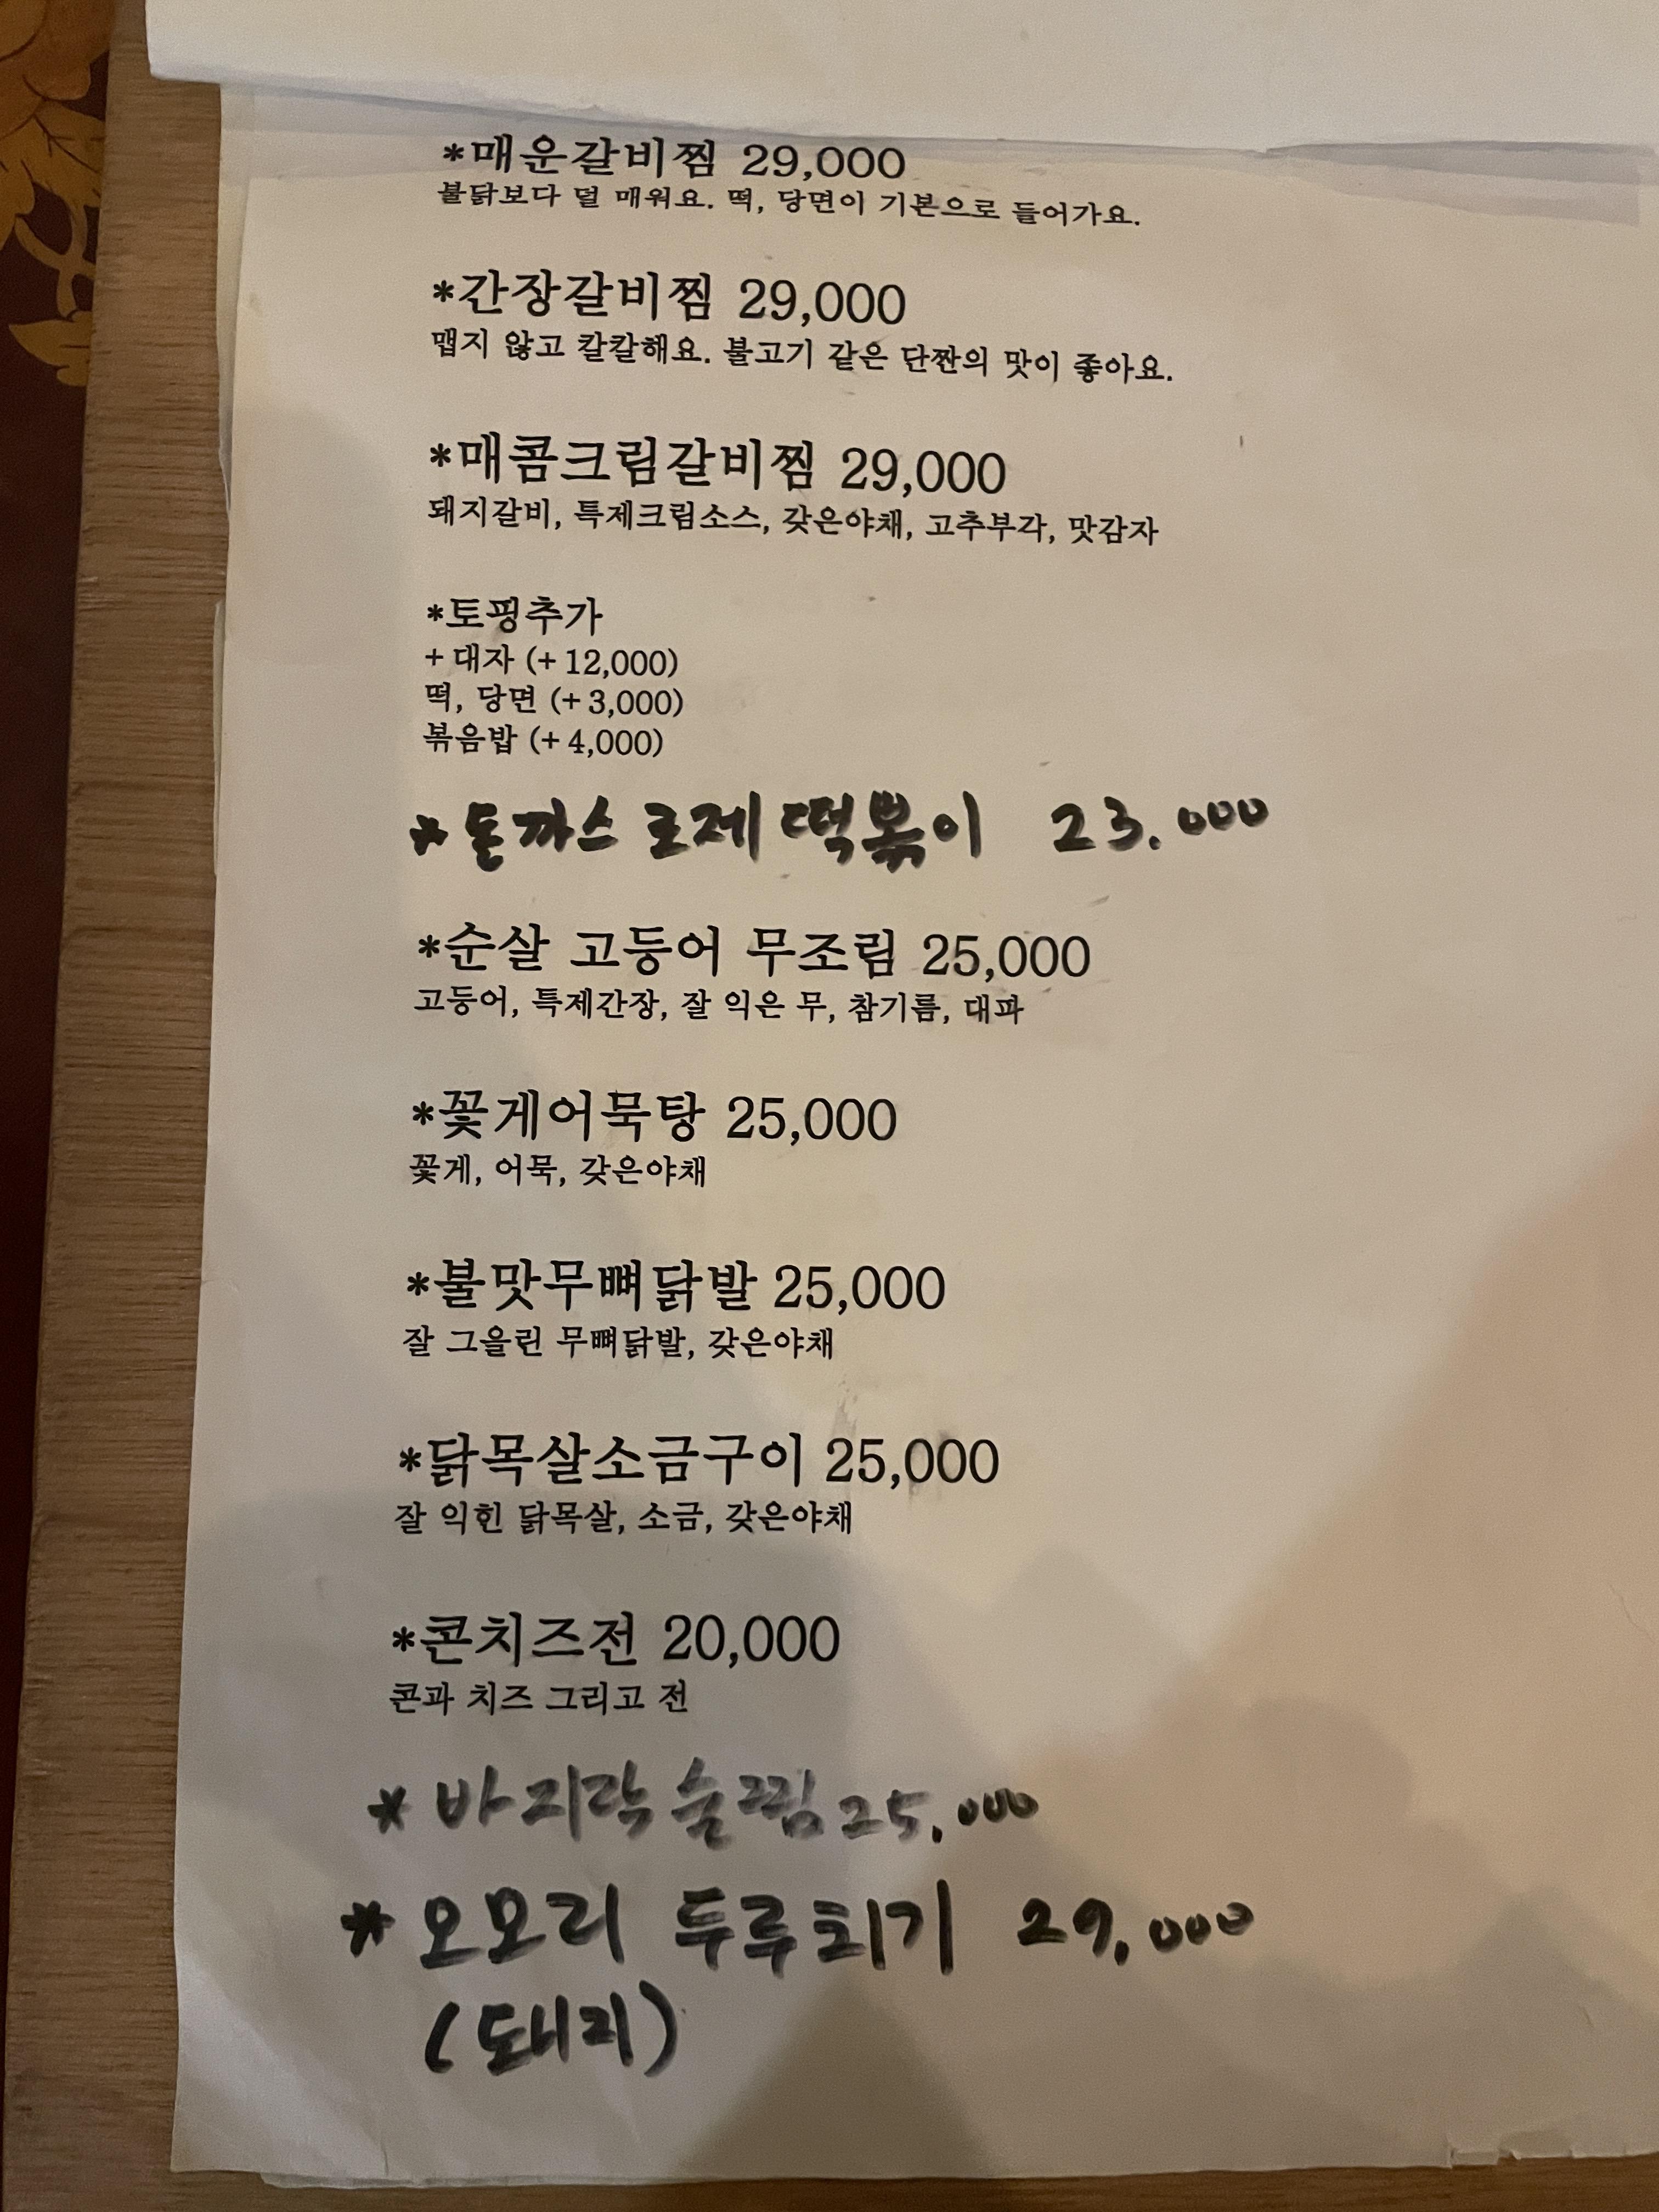 *매운갈비찜 29,000
불닭보다 덜 매워요. 떡, 당면이 기본으로 들어가요.
*간장갈비찜 29,000
맵지 않고 칼칼해요. 불고기 같은 단짠의 맛이 좋아요.
*매콤크림갈비찜 29,000
돼지갈비, 특제크림소스, 갖은야채, 고추부각, 맛감자
*토핑추가
+ 대자 (+ 12,000)
떡, 당면 (+ 3,000)
볶음밥 (+ 4,000)
* 돈까스 로제 떡볶이 23.000
*순살 고등어 무조림 25,000
고등어, 특제간장, 잘 익은 무, 참기름, 대파
*꽃게어묵탕 25,000
꽃게, 어묵, 갖은야채
*불맛무뼈닭발 25,000
잘 그을린 무뼈닭발, 갖은야채
*닭목살소금구이 25,000
잘 익힌 닭목살, 소금, 갖은야채
*콘치즈전 20,000
콘과 치즈 그리고 전
* 바지락술찜 25,000
* 오모리 두루치기 29,000
(돼지)